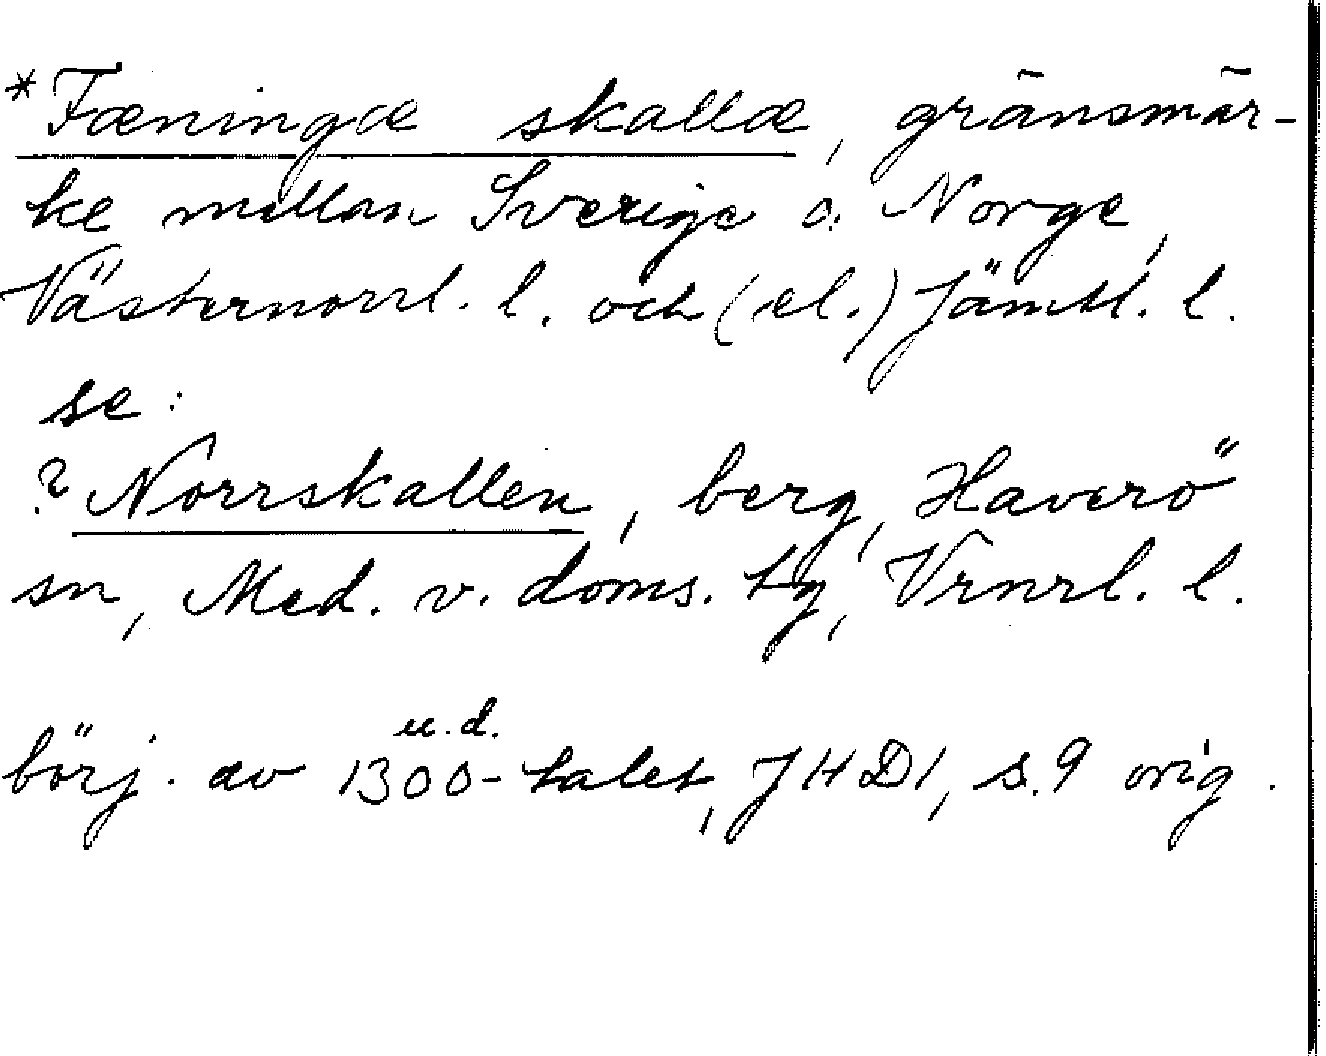 *Fæningæ skallæ, gränsmär-
ke mellan Sverige o. Norge,
Västernorrl. l. och (el.) Jämtl. l.
se:
? Norrskallen, berg, Haverö
sn, Med. v. doms. tg, Vrnrl. l.
u.d.
börj. av 1300-talet, JHD1, s.9 orig.